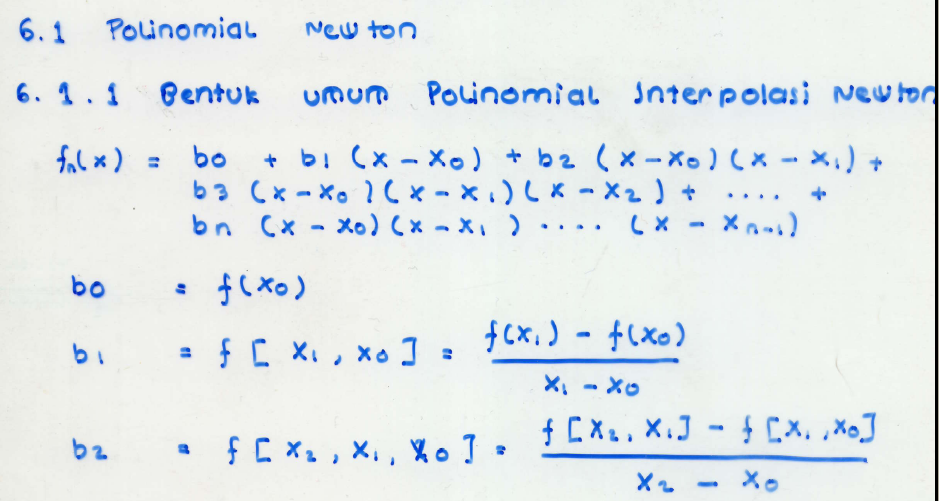 6.1 Polinomial Newton
6.1.1 Bentuk umum Polinomial Interpolasi Newton
fn(x) = b0 + b1 (x - x0) + b2 (x-x0)(x - x1) +
b3 (x-x0)(x-x1)(x-x2) + .... +
bn (x-x0)(x-x1) .... (x - xn-1)
b0 = f(x0)
b1 = f [ x1, x0 ] = f(x1) - f(x0) / x1 - x0
b2 = f [ x2, x1, x0 ] = f [x2, x1] - f [x1, x0] / x2 - x0